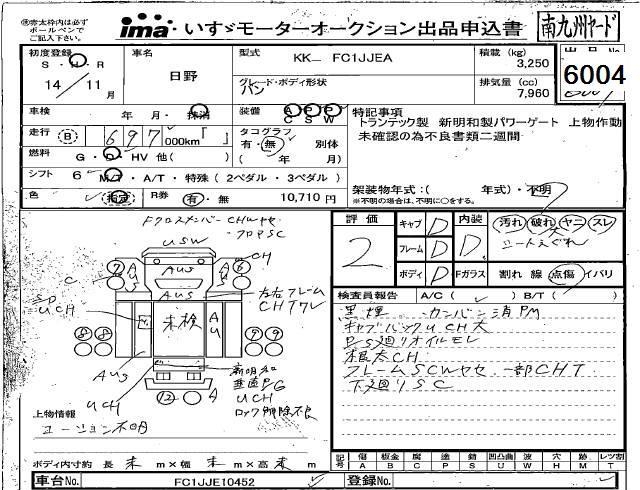 ※赤太枠内は必ず
ボールペンで
ご記入下さい。
ima いすゞモーターオークション出品申込書
南九州ヤード
初度登録
S・H・R
14/11月
車名
日野
型式
KK— FC1JJEA
グレード・ボディ形状
バン
積載 (kg)
3,250
排気量 (cc)
7,960
出品No
6004
車検
年 月・抹消
装備 A P A C S W
走行
697
000km『 』
タコグラフ
有・無 別体
( 年 月)
燃料 G・D・HV 他( )
シフト 6 M/T・A/T・特殊(2ペダル・3ペダル)
色 指定
R券 有・無 10,710円
特記事項
トランテック製 新明和製パワーゲート 上物作動
未確認の為不良書類二週間
架装物年式:( 年式)・不明
※不明の場合は、不明に○をする。
USW
CH
AUS
AUS
左右フレーム
CHTワレ
UCH
未検
AU
AUS
UCH
新明和
垂直PG
UCH
ロック解除不良
⑫
A
上物情報
ユーション不明
ボディ内寸約 長 未 m×幅 未 m×高 未 m
評価
2
キャブ D
フレーム D
ボディ D
内装
D
Fガラス
汚れ 破れ ヤニ スレ
シートえぐれ
割れ 線 点傷 イバリ
検査員報告 A/C( ✓ ) B/T( )
黒煙 カンバン消PM
キャブバックUCH大
P/S廻りオイルモレ
根太CH
フレームSCWヤセ 一部CHT
下廻りSC
記号 傷 板金 腐 塗 錆 凹凸曲 波 穴 跡 レツ割
A B C P S U W H M T
車台No. FC1JJE10452
登録No.